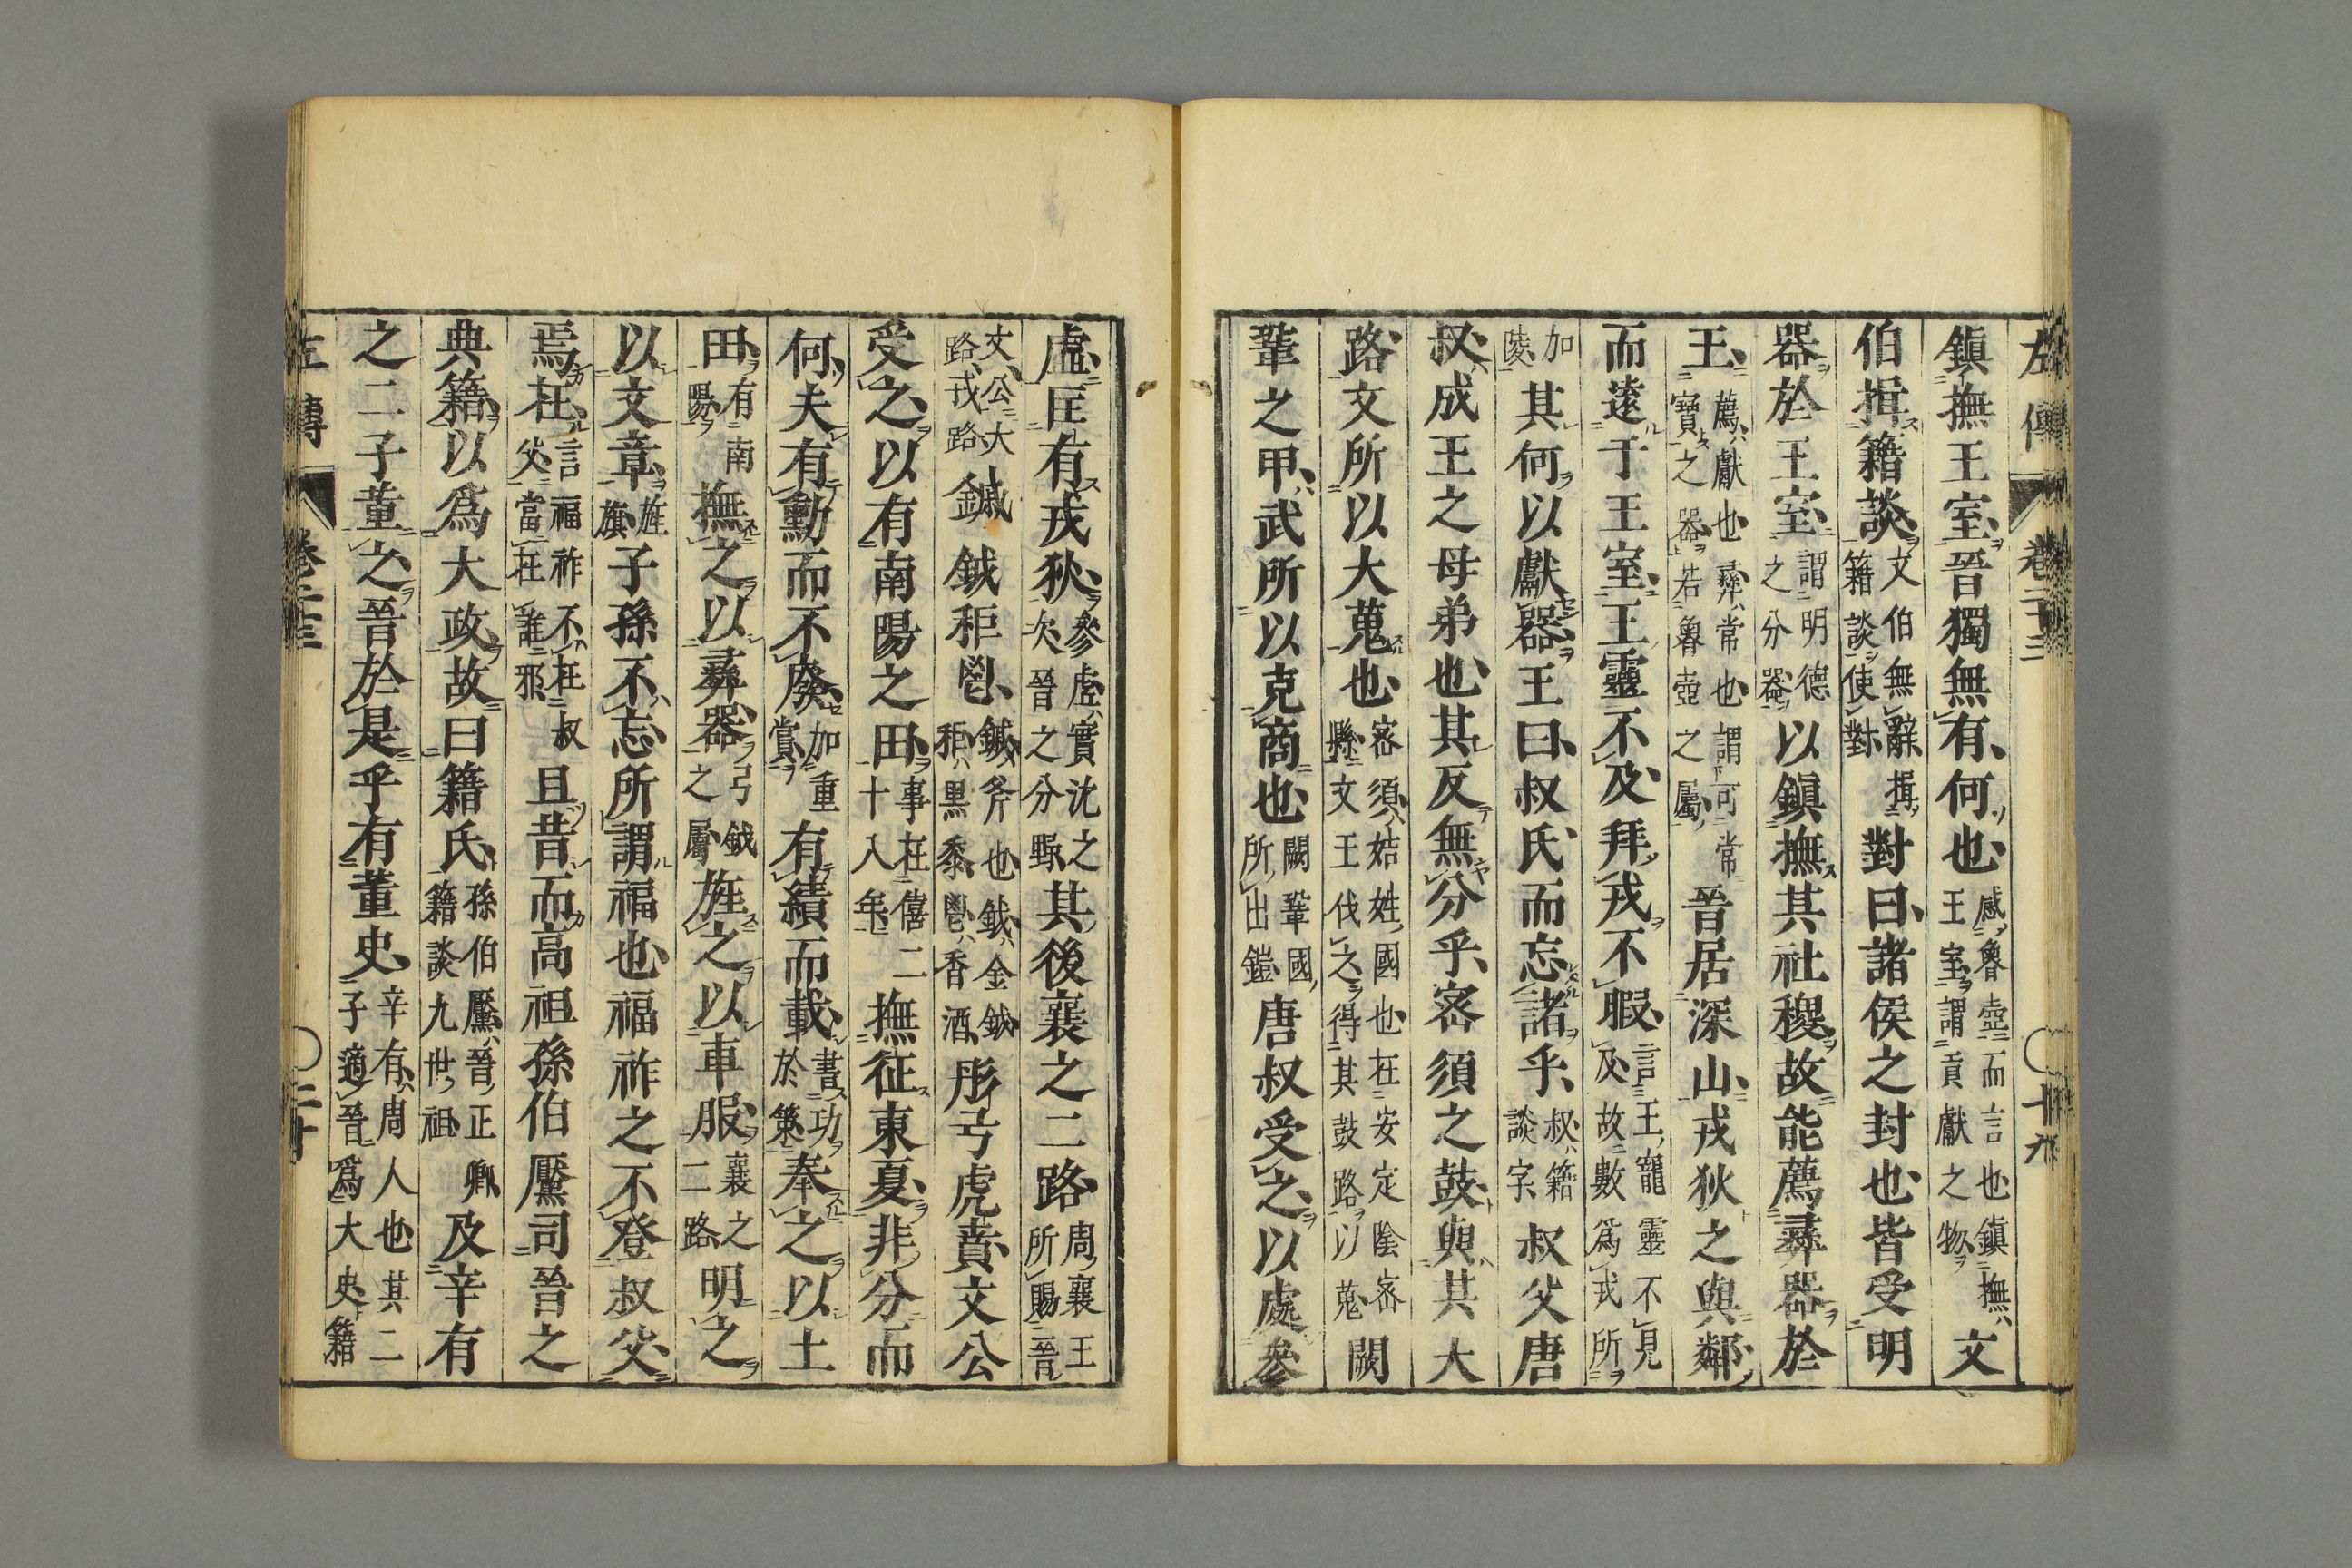 左傳 卷二十三 十九
鎮撫王室晉獨無有何也感魯壺而言也鎮撫王室謂貢獻之物文
伯揖籍談文伯無辭揖籍談使對對曰諸侯之封也皆受明
器於王室謂明德之分器以鎮撫其社稷故能薦彝器於
王薦獻也彝常也謂可常寶之器若魯壺之屬晉居深山戎狄之與鄰
而遠于王室王靈不及拜戎不暇言王寵靈不見及故數爲戎所
加陵其何以獻器王曰叔氏而忘諸乎叔籍談字叔父唐
叔成王之母弟也其反無分乎密須之鼓與其大
路文所以大蒐也密須姞姓國也在安定陰密縣文王伐之得其鼓路以蒐闕
鞏之甲武所以克商也闕鞏國所出鎧唐叔受之以處參
虛匡有戎狄參虛實沈之次晉之分野其後襄之二路周襄王所賜晉
文公大路戎路鏚鉞秬鬯鏚斧也鉞金鉞秬黑黍鬯香酒彤弓虎賁文公
受之以有南陽之田事在僖二十八年撫征東夏非分而
何夫有勳而不廢加重賞有績而載書功於策奉之以土
田有南陽撫之以彝器弓鉞之屬旌之以車服襄之二路明之
以文章旌旗子孫不忘所謂福也福祚之不登叔父
焉在言福祚不在叔父當在誰邪且昔而高祖孫伯黶司晉之
典籍以爲大政故曰籍氏孫伯黶晉正卿籍談九世祖及辛有
之二子董之晉於是乎有董史辛有周人也其二子適晉爲大史籍
左傳 卷二十三 二十